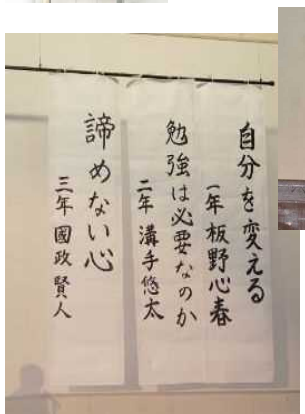 自分を変える
一年 板野心春
勉強は必要なのか
二年 溝手悠太
諦めない心
三年 國政賢人